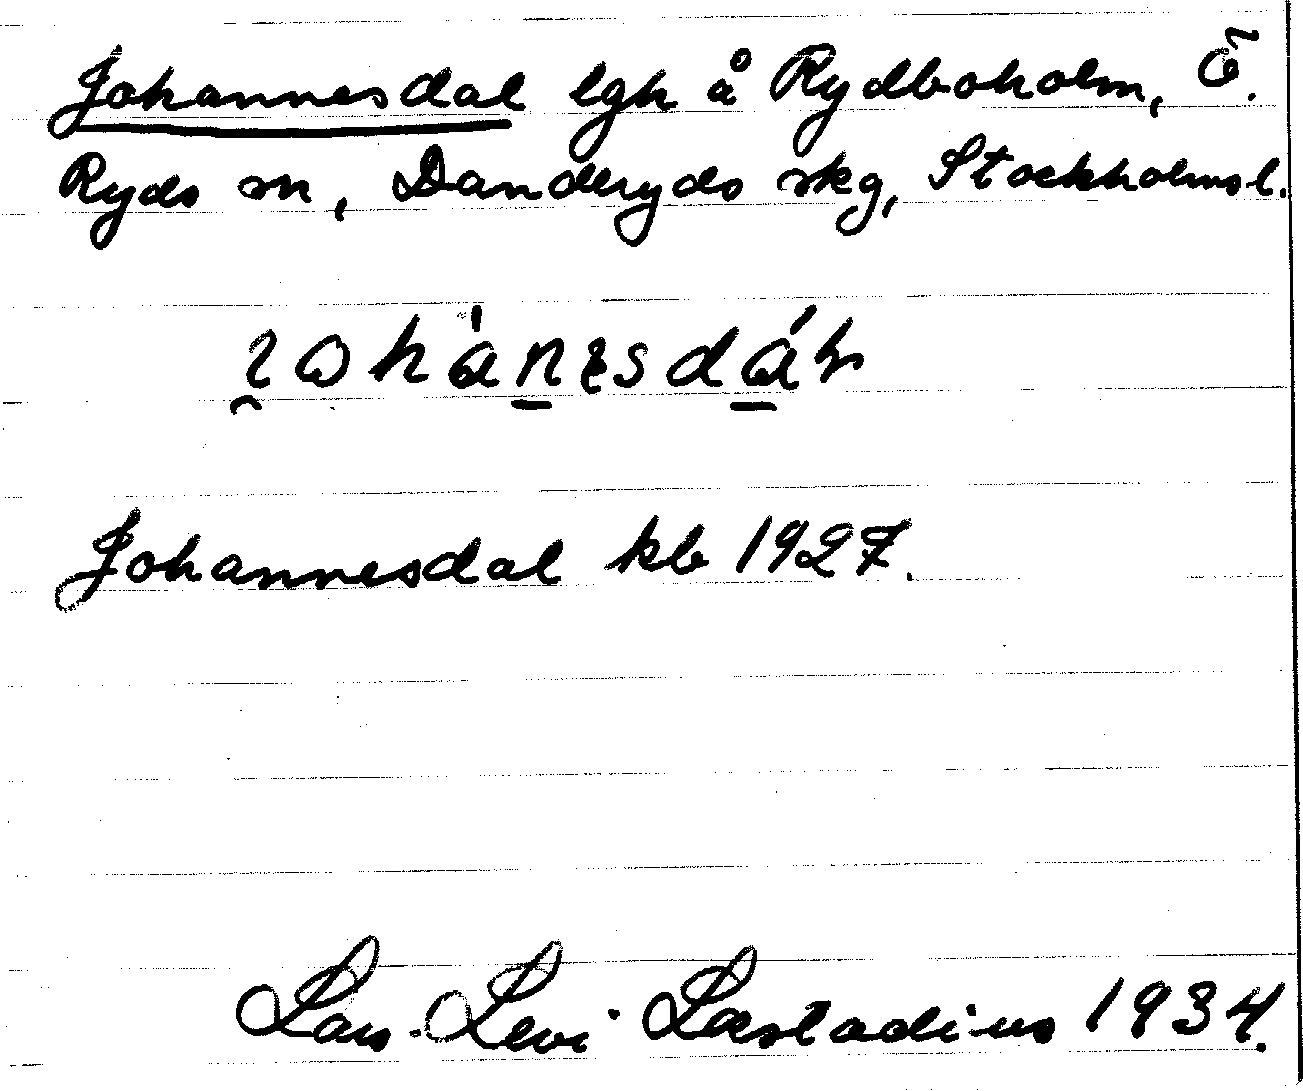 Johannesdal lgh å Rydboholm, Ö.
Ryds sn, Danderyds skg, Stockholms l.
Johannesdal kb 1927.
Lars-Levi Læstadius 1934.